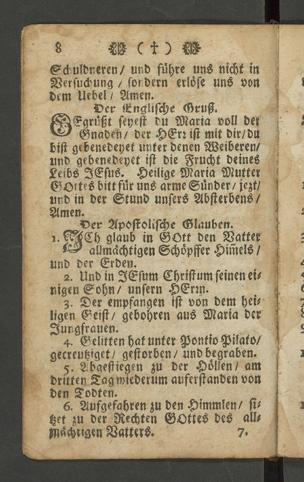 8 ( † )
Schuldneren / und führe uns nicht in
Versuchung / sondern erlöse uns von
dem Uebel / Amen.
Der Englische Gruß.
GEgrüßt seyest du Maria voll der
Gnaden / der HErr ist mit dir / du
bist gebenedeyet unter denen Weiberen /
und gebenedeyet ist die Frucht deines
Leibs JEsus. Heilige Maria Mutter
GOttes bitt für uns arme Sünder / jezt /
und in der Stund unsers Absterbens /
Amen.
Der Apostolische Glauben.
1. JCh glaub in GOtt den Vatter
allmächtigen Schöpffer Him̄els /
und der Erden.
2. Und in JEsum Christum seinen ei-
nigen Sohn / unsern HErrn.
3. Der empfangen ist von dem hei-
ligen Geist / gebohren aus Maria der
Jungfrauen.
4. Gelitten hat unter Pontio Pilato /
gecreutziget / gestorben / und begraben.
5. Abgestiegen zu der Höllen / am
dritten Tag wiederum auferstanden von
den Todten.
6. Aufgefahren zu den Himmlen / si-
tzet zu der Rechten GOttes des all-
mächtigen Vatters. 7.